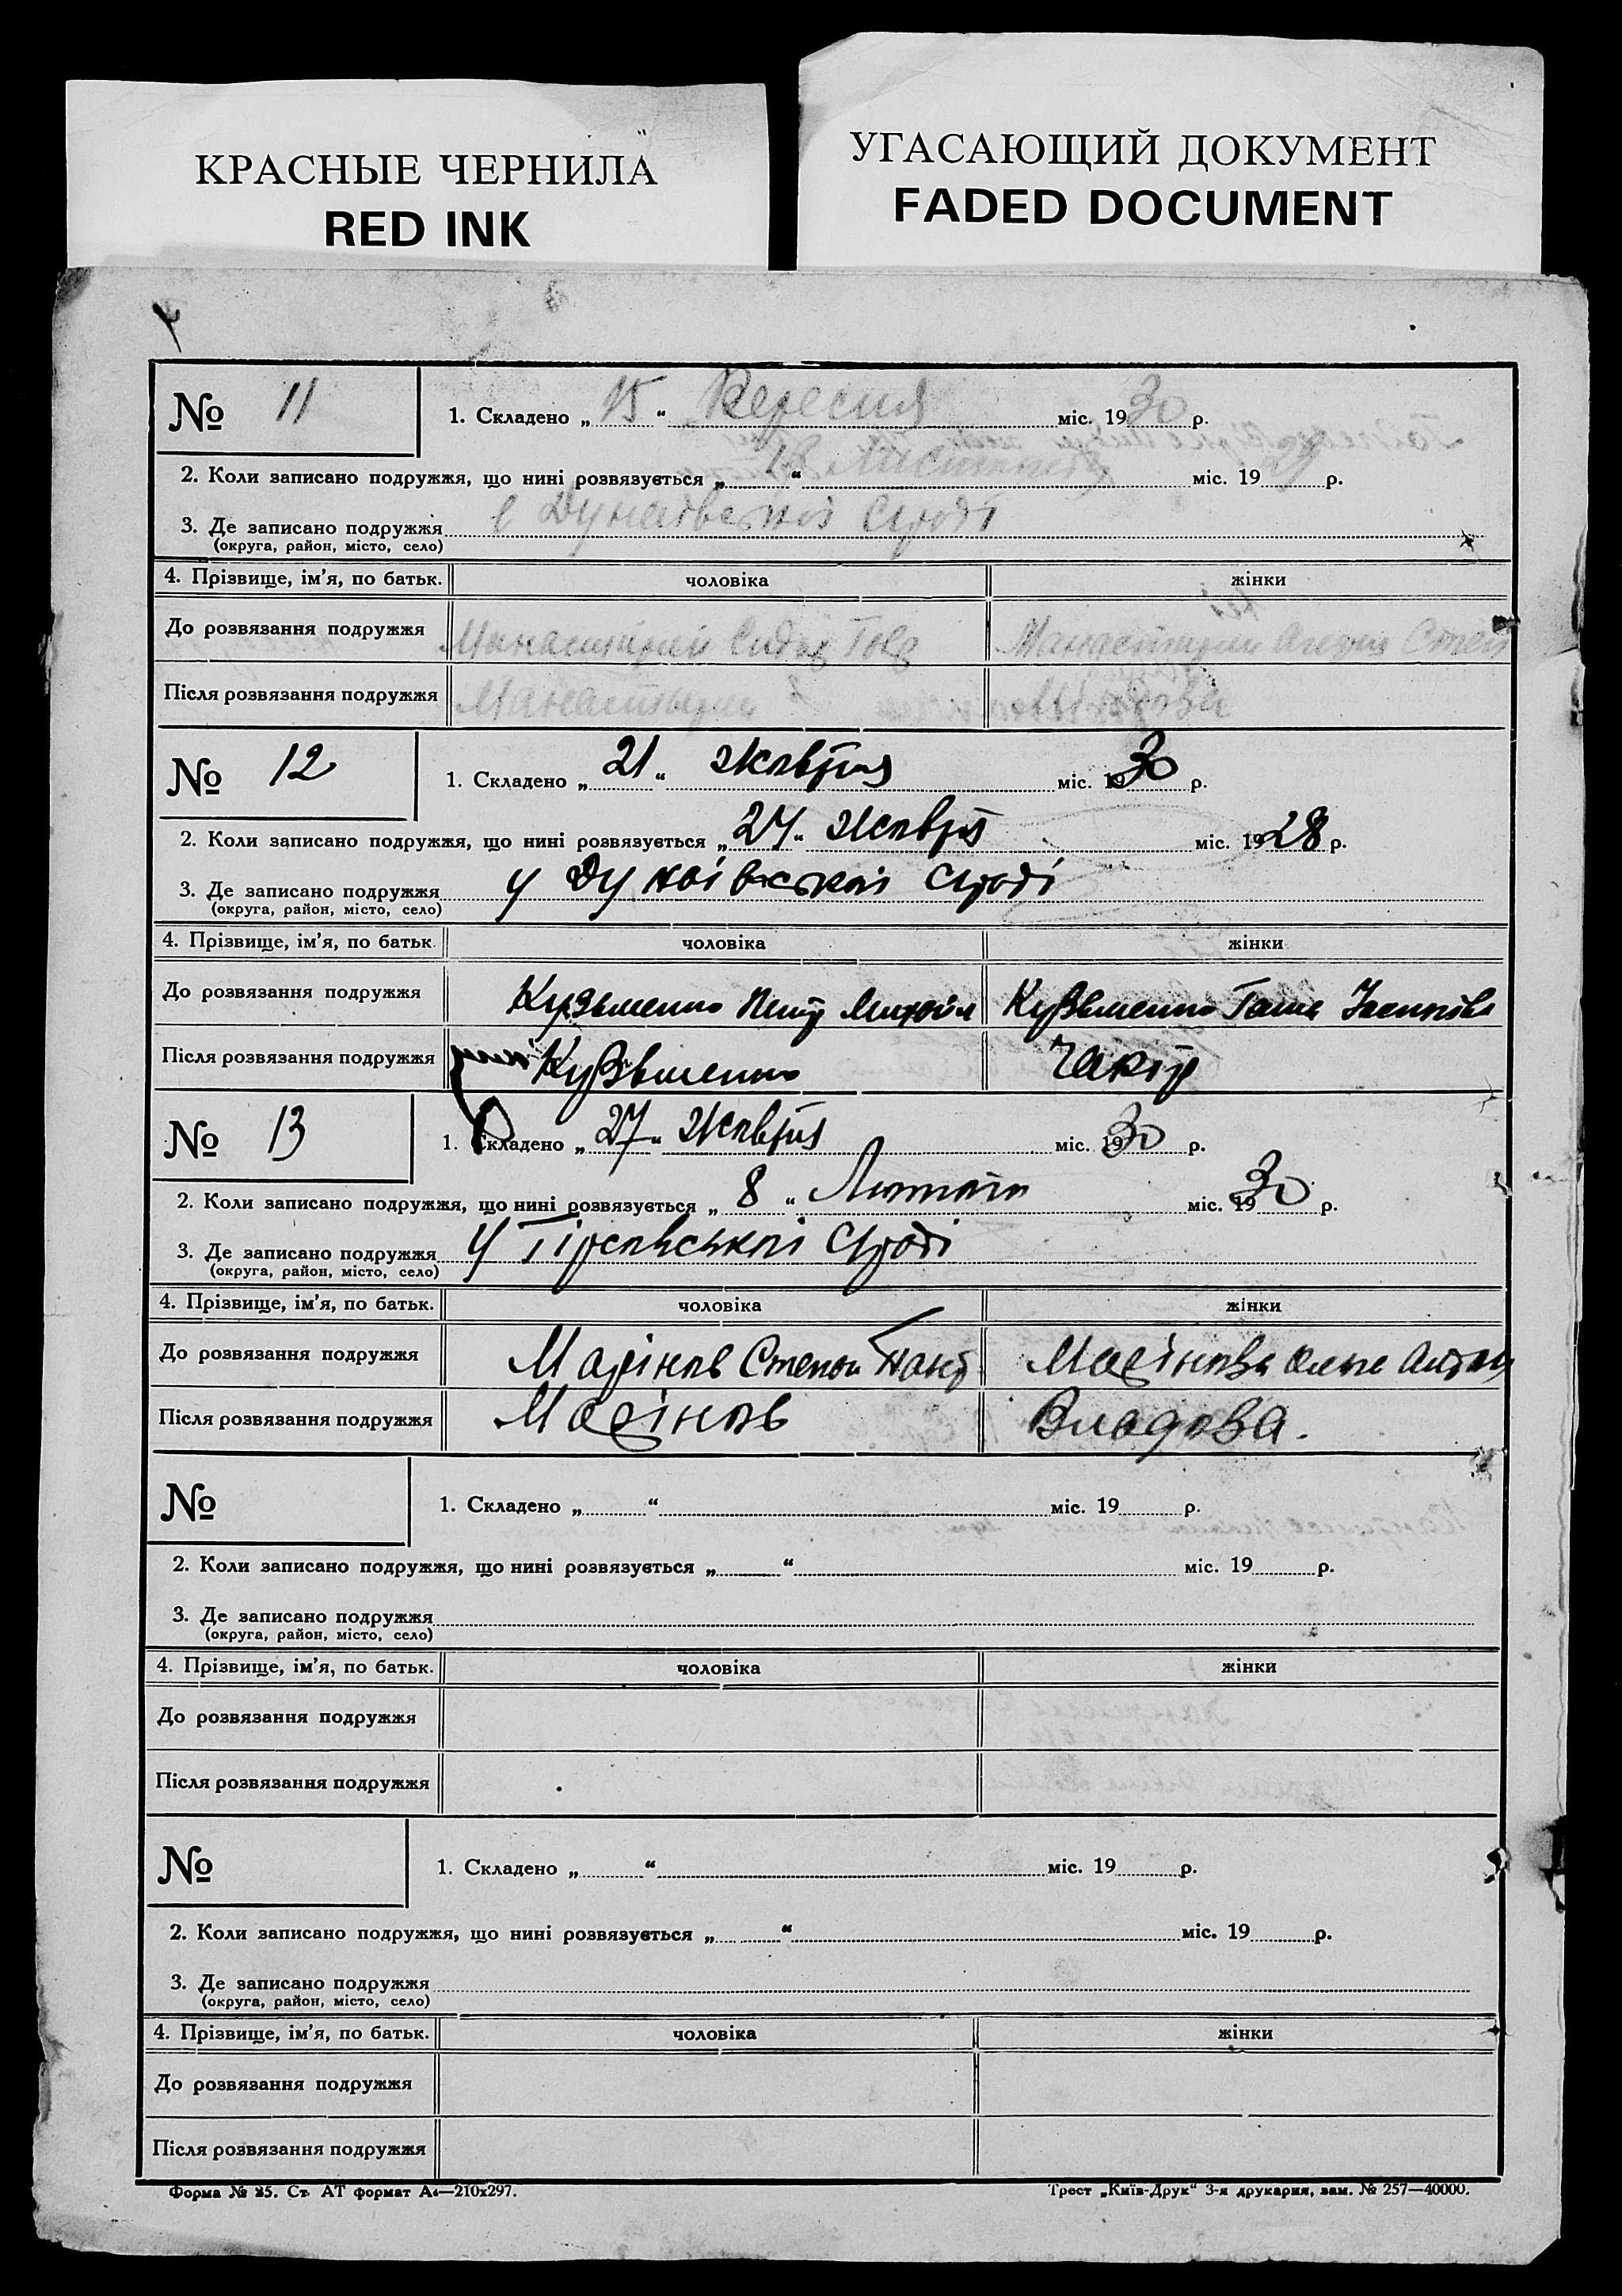 КРАСНЫЕ ЧЕРНИЛА
RED INK
УГАСАЮЩИЙ ДОКУМЕНТ
FADED DOCUMENT
№ 11
1. Складено „ 15 “ Вересня міс. 19 30 р.
2. Коли записано подружжя, що нині розвязується „ “ Листопада міс. 19 р.
3. Де записано подружжя в
(округа, район, місто, село)
4. Прізвище, ім'я, по батьк. чоловіка жінки
До розвязання подружжя
Після розвязання подружжя
№ 12
1. Складено „ 21 “ Жовтня міс. 19 30 р.
2. Коли записано подружжя, що нині розвязується „ 27 “ Жовтня міс. 19 28 р.
3. Де записано подружжя у
(округа, район, місто, село)
4. Прізвище, ім'я, по батьк. чоловіка жінки
До розвязання подружжя Кузьменко Петр Кузьменко
Після розвязання подружжя Кузьменко
№ 13
1. Складено „ 27 “ Жовтня міс. 19 30 р.
2. Коли записано подружжя, що нині розвязується „ 8 “ Лютого міс. 19 30 р.
3. Де записано подружжя У
(округа, район, місто, село)
4. Прізвище, ім'я, по батьк. чоловіка жінки
До розвязання подружжя Марінов Степан Марінова
Після розвязання подружжя Марінов Владова.
№
1. Складено „ “ міс. 19 р.
2. Коли записано подружжя, що нині розвязується „ “ міс. 19 р.
3. Де записано подружжя
(округа, район, місто, село)
4. Прізвище, ім'я, по батьк. чоловіка жінки
До розвязання подружжя
Після розвязання подружжя
№
1. Складено „ “ міс. 19 р.
2. Коли записано подружжя, що нині розвязується „ “ міс. 19 р.
3. Де записано подружжя
(округа, район, місто, село)
4. Прізвище, ім'я, по батьк. чоловіка жінки
До розвязання подружжя
Після розвязання подружжя
Форма № 25. Ст. АТ формат А4—210х297.
Трест „Київ-Друк“ 3-я друкарня, зам. № 257—40000.